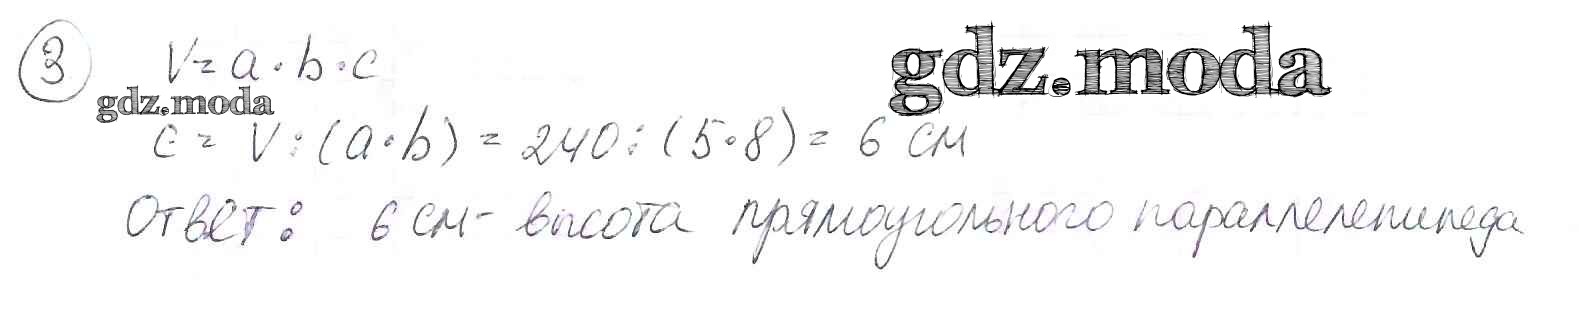 ③ V = a · b · c
gdz.moda
gdz.moda
c = V : (a · b) = 240 : (5 · 8) = 6 см
Ответ: 6 см - высота прямоугольного параллелепипеда